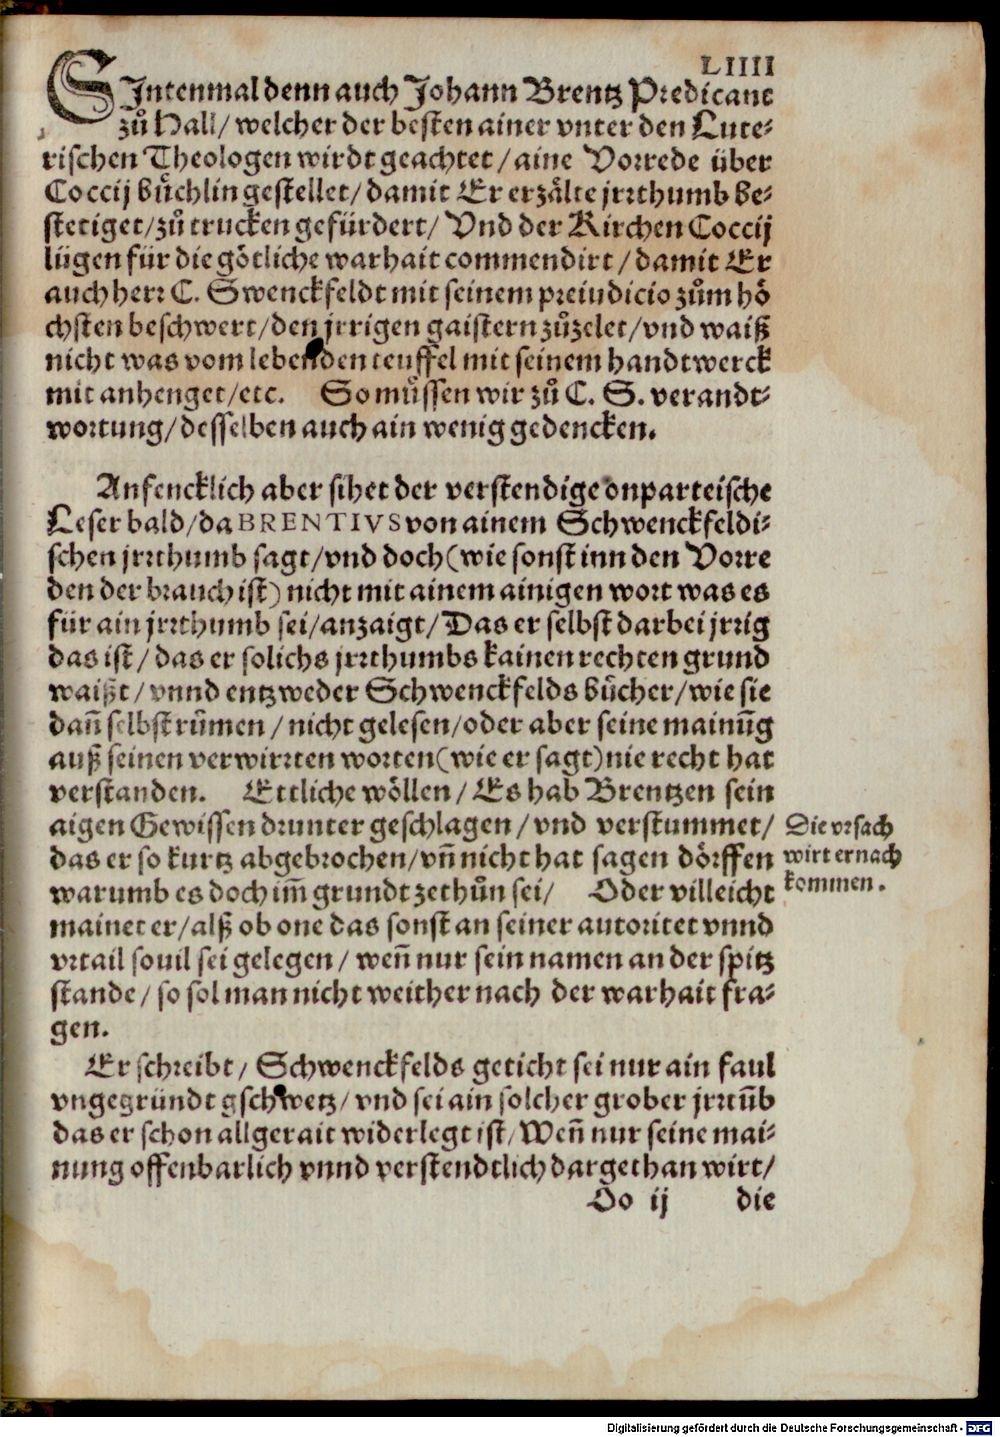 LIIII
SIntenmal denn auch Johann Brentz Predicant
zuͦ Hall/ welcher der besten ainer vnter den Lute-
rischen Theologen wirdt geachtet/ aine Vorrede über
Coccij buͤchlin gestellet/ damit Er erzaͤlte jrrthumb be-
stetiget/ zuͦ trucken gefürdert/ Vnd der Kirchen Coccij
lügen für die goͤtliche warhait commendirt/ damit Er
auch herr C. Swenckfeldt mit seinem preiudicio zuͦm hoͤ
chsten beschwert/ den jrrigen gaistern zuͦzelet/ vnd waiß
nicht was vom lebenden teuffel mit seinem handtwerck
mit anhenget/ etc. So muͤssen wir zuͦ C. S. verandt-
wortung/ desselben auch ain wenig gedencken.
Anfencklich aber sihet der verstendige onparteische
Leser bald/ da BRENTIVS von ainem Schwenckfeldi-
schen jrrthumb sagt/ vnd doch (wie sonst inn den Vorre
den der brauch ist) nicht mit ainem ainigen wort was es
für ain jrrthumb sei/ anzaigt/ Das er selbst darbei jrrig
das ist/ das er solichs jrrthumbs kainen rechten grund
waißt/ vnnd entzweder Schwenckfelds buͤcher/ wie sie
dañ selbst ruͤmen/ nicht gelesen/ oder aber seine mainũg
auß seinen verwirrten worten (wie er sagt) nie recht hat
verstanden. Ettliche woͤllen/ Es hab Brentzen sein
aigen Gewissen drunter geschlagen/ vnd verstummet/
das er so kurtz abgebrochen/ vñ nicht hat sagen doͤrffen
warumb es doch im̃ grundt zethuͦn sei/ Oder villeicht
mainet er/ alß ob one das sonst an seiner autoritet vnnd
vrtail souil sei gelegen/ weñ nur sein namen an der spitz
stande/ so sol man nicht weither nach der warhait fra-
gen.
Die vrsach
wirt ernach
kommen.
Er schreibt/ Schwenckfelds geticht sei nur ain faul
vngegründt gschwetz/ vnd sei ain solcher grober jrrtũb
das er schon allgerait widerlegt ist/ Weñ nur seine mai-
nung offenbarlich vnnd verstendtlich dargethan wirt/
Oo ij die
Digitalisierung gefördert durch die Deutsche Forschungsgemeinschaft - DFG